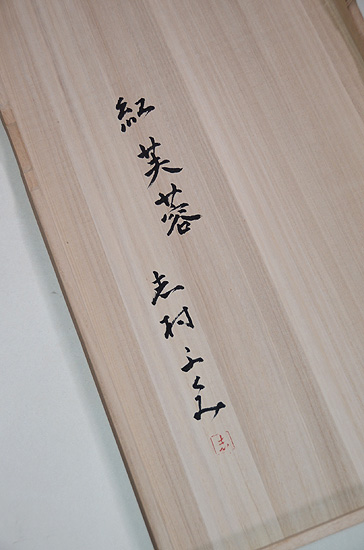 紅芙蓉 志村ふくみ
志